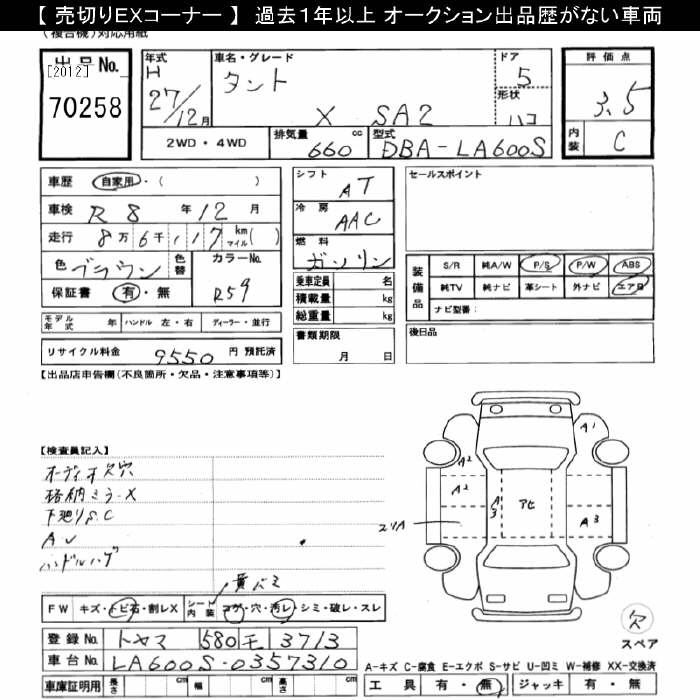 【 売切りEXコーナー 】 過去1年以上 オークション出品歴がない車両
(複合機)対応用紙
出品No.
[2012]
70258
年式
H
27/12月
車名・グレード
タント
X SA2
ドア
5
形状
ハコ
評価点
3.5
内装
C
2WD・4WD
排気量
660 cc
型式
DBA-LA600S
車歴
自家用・( )
車検
R 8 年 12 月
走行
8万6千117 km マイル( )
色
ブラウン
色替
カラーNo.
R59
保証書
有・無
シフト
AT
冷房
AAC
燃料
ガソリン
乗車定員 名
積載量 kg
総重量 kg
書類期限
月 日
セールスポイント
装備品
S/R 純A/W P/S P/W ABS
純TV 純ナビ 革シート 外ナビ エアB
ナビ型番:
後日品
モデル年式 年 ハンドル 左・右 ディーラー・並行
リサイクル料金 9550 円 預託済
【出品店申告欄(不良箇所・欠品・注意事項等)】
【検査員記入】
オーディオ欠穴
格納ミラーX
下廻りS.C
AU
ハンドルハゲ
A1
A2
A2
A3
アヒ
A3
スリA
黄バミ
FW キズ・トビ石・割レX
シート内装 コゲ・穴・汚レ・シミ・破レ・スレ
登録No. トヤマ 580 モ 3713
車台No. LA600S-0357310
車庫証明用 長 cm 幅 cm 高 cm
欠
スペア
A-キズ C-腐食 E-エクボ S-サビ U-凹ミ W-補修 XX-交換済
工具 有・無 ジャッキ 有・無